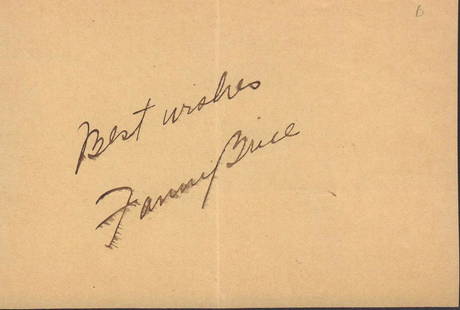 B
Best wishes
Fanny Brice